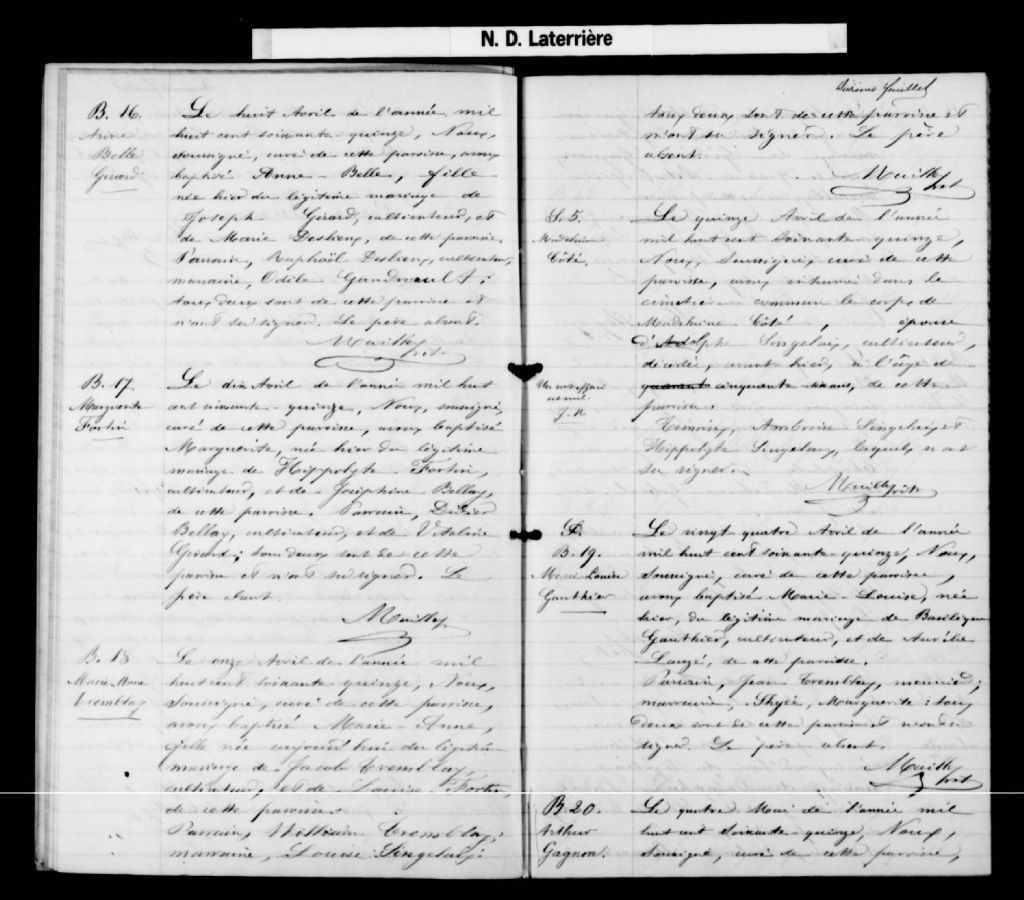 N. D. Laterrière
B. 16.
Anne
Belle
Girard
Le huit Avril de l'année mil
huit cent soixante-quinze, Nous,
soussigné, curé de cette paroisse, avons
baptisé Anne-Belle, fille
née hier du légitime mariage de
Joseph Girard, cultivateur, et
de Marie Desbiens, de cette paroisse.
Parrain, Raphaël Desbiens, cultivateur,
marraine, Odile Gaudreault;
tous deux sont de cette paroisse et
n'ont su signer. Le père absent.
ptr.
B. 17.
Marguerite
Fortin
Le dix Avril de l'année mil huit
cent soixante-quinze, Nous, soussigné,
curé de cette paroisse, avons baptisé
Marguerite, née hier du légitime
mariage de Hippolyte Fortin,
cultivateur, et de Joséphine Bellay,
de cette paroisse. Parrain, Didier
Bellay, cultivateur, et de Vitaline
Girard; tous deux sont de cette
paroisse et n'ont su signer. Le
père absent.
B. 18
Marie-Anne
Tremblay
Le onze Avril de l'année mil
huit cent soixante quinze, Nous,
soussigné, curé de cette paroisse,
avons baptisé Marie-Anne,
fille née aujourd'hui du légitime
mariage de Jacob Tremblay,
cultivateur, et de Louise Fortin,
de cette paroisse.
Parrain, William Tremblay;
marraine, Louise Singelais:
feuillet
tous deux sont de cette paroisse et
n'ont su signer. Le père
absent.
ptr
S. 5.
Madeleine
Côté.
Le quinze Avril de l'année
mil huit cent soixante-quinze,
Nous, soussigné, curé de cette
paroisse, avons inhumé dans le
cimetière commun le corps de
Madeleine Côté, épouse
d'Adolphe Singelais, cultivateur,
décédée, avant hier, à l'âge de
quarante cinquante ans, de cette
paroisse.
Un mot
nul.
Témoins, Ambroise Singelais et
Hippolyte Singelais, lesquels n'ont
su signer.
ptr
B. 19.
Marie-Louise
Gauthier
Le vingt quatre Avril de l'année
mil huit cent soixante-quinze, Nous,
soussigné, curé de cette paroisse,
avons baptisé Marie-Louise, née
hier, du légitime mariage de Basilique
Gauthier, cultivateur, et de Aurélie
Lauzé, de cette paroisse.
Parrain, Jean Tremblay, meunier;
marraine, Marguerite: tous
deux sont de cette paroisse et n'ont su
signer. Le père absent.
ptr
B. 20.
Arthur
Gagnon.
Le quatre Mai de l'année mil
huit cent soixante-quinze, Nous,
soussigné, curé de cette paroisse,